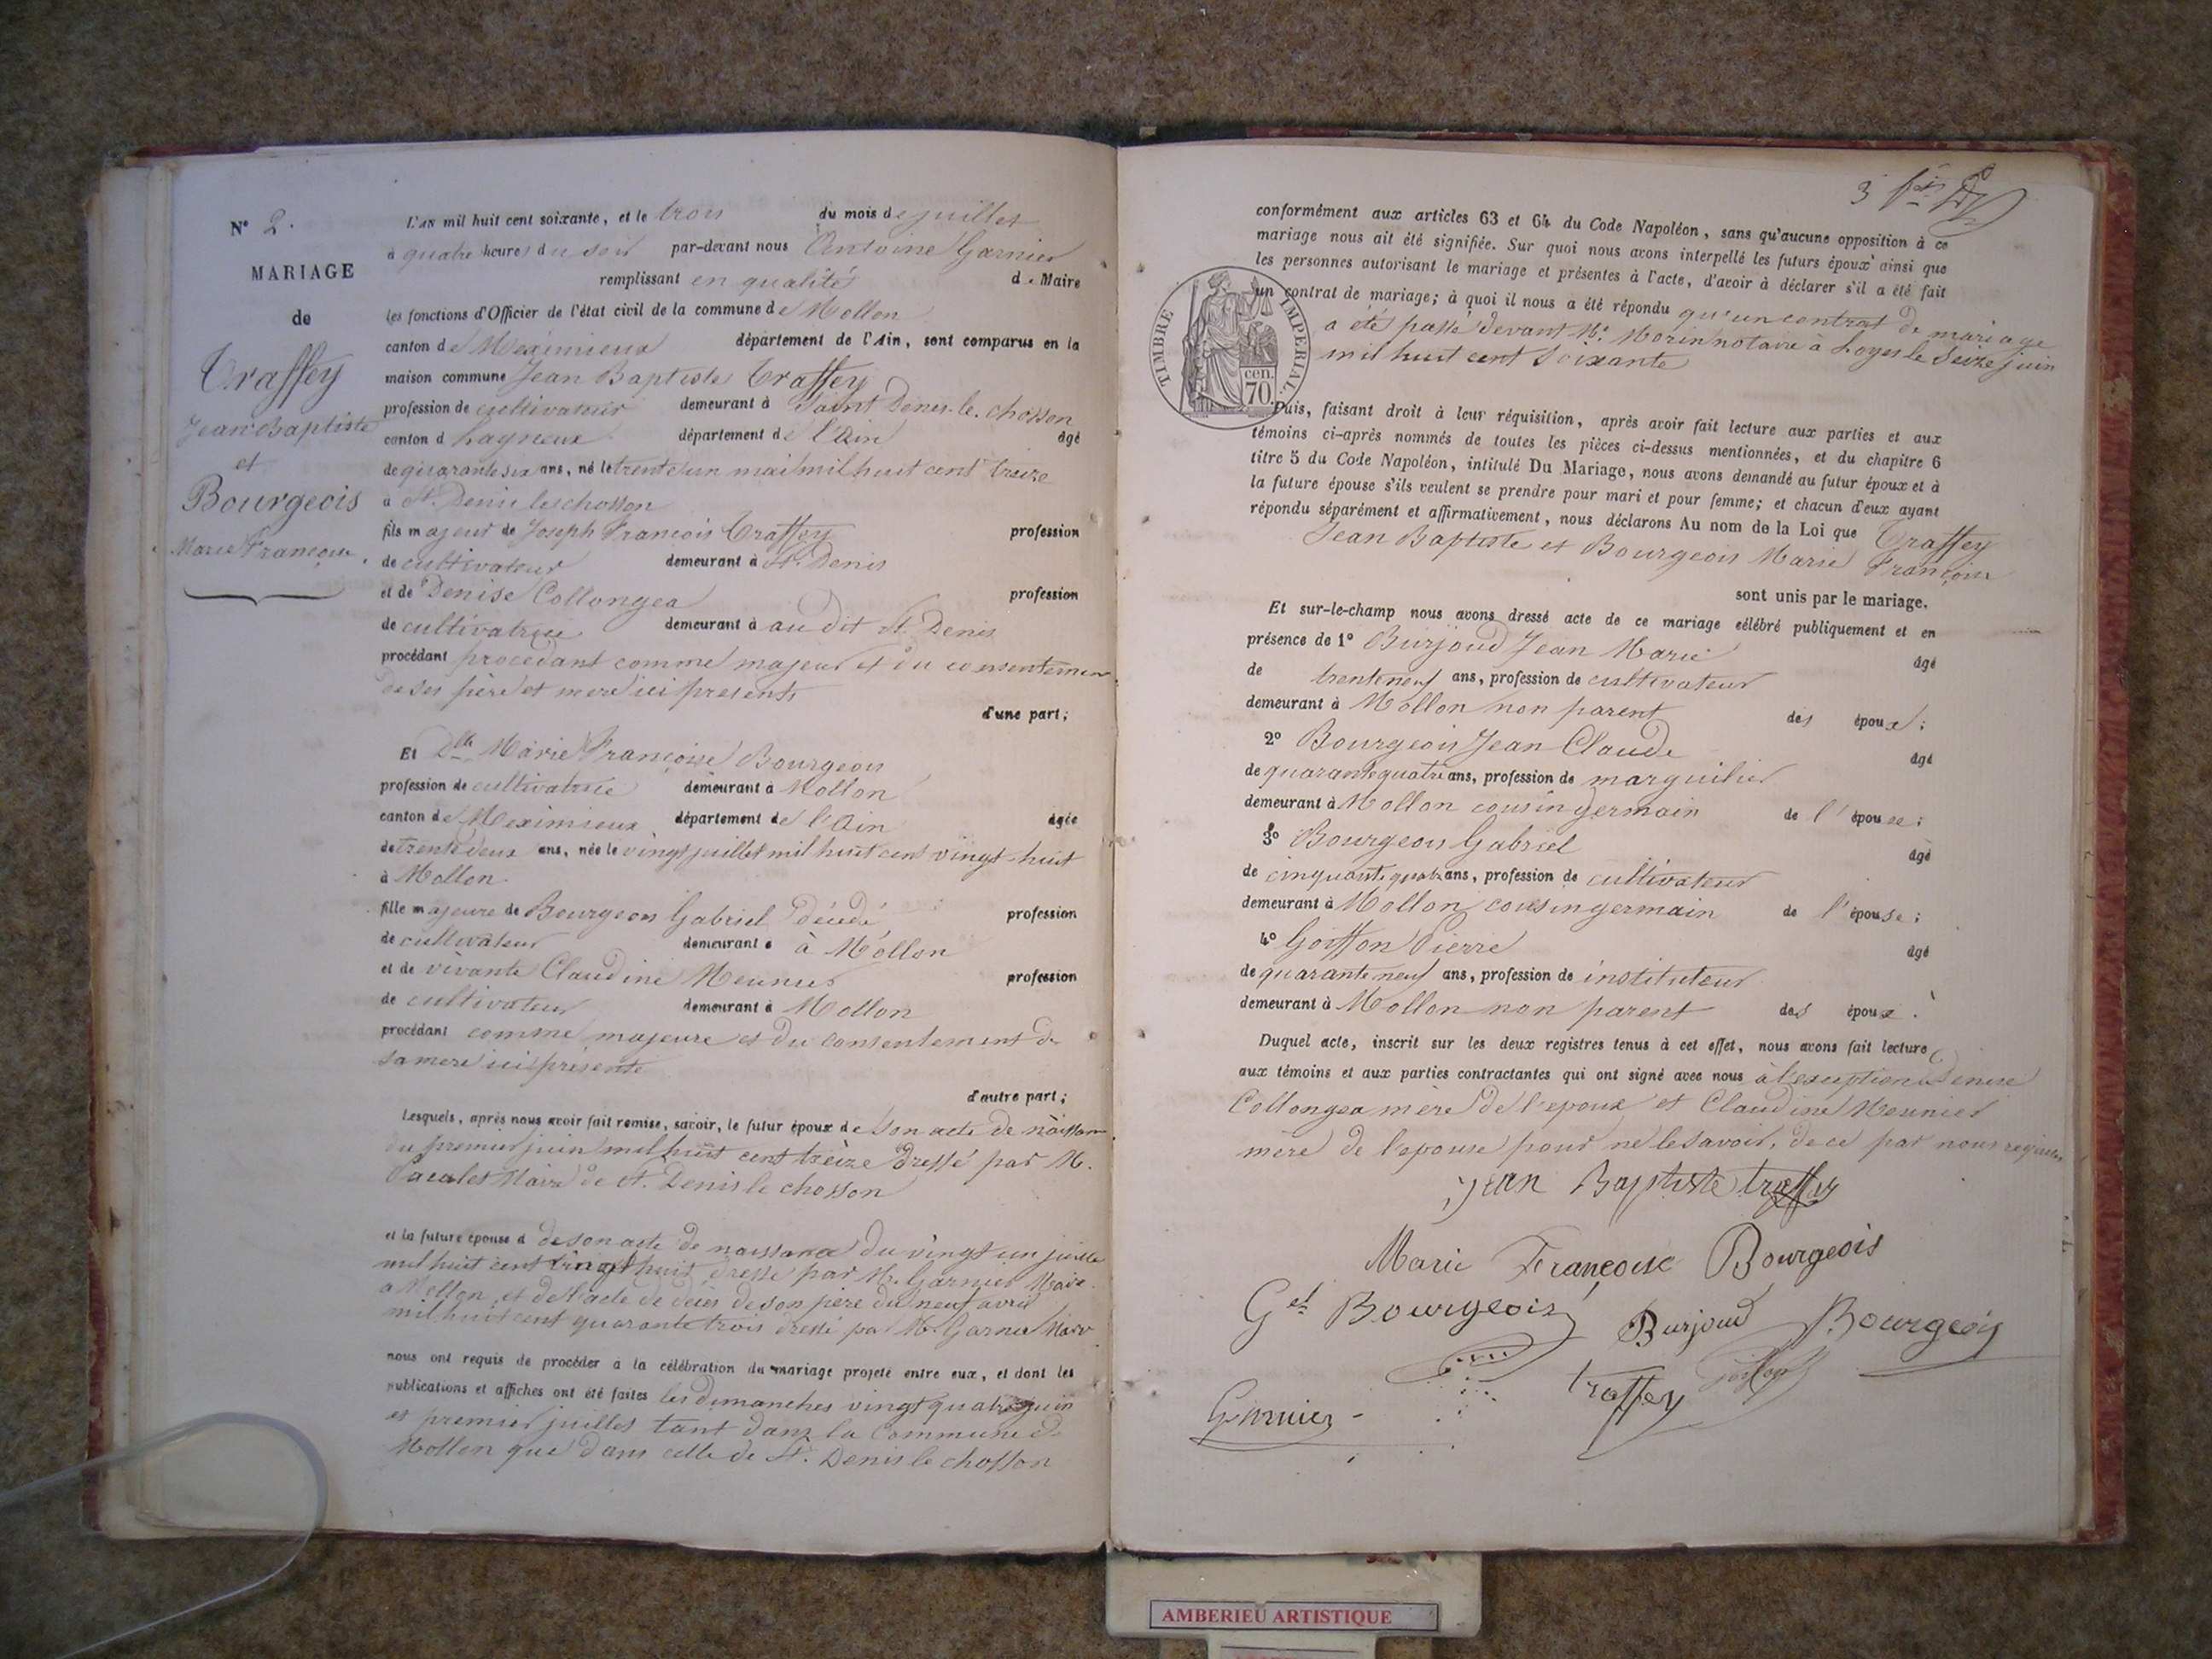 N° 2.
MARIAGE
de
Traffey
Jean Baptiste
et
Bourgeois
Marie Françoise
L'an mil huit cent soixante, et le trois du mois de juillet
à quatre heures du soir par-devant nous Antoine Garnier
remplissant en qualité de Maire
les fonctions d'Officier de l'état civil de la commune de Mollon
canton de Meximieux département de l'Ain, sont comparus en la
maison commune Jean Baptiste Traffey
profession de cultivateur demeurant à Saint Denis-le-chosson
canton d Lagnieux département de l'Ain âgé
de quarante six ans, né le trente un mai mil huit cent treize
à St. Denis le chosson
fils majeur de Joseph François Traffey profession
de cultivateur demeurant à St. Denis
et de Denise Collongea profession
de cultivatrice demeurant à au dit St. Denis
procédant procedant comme majeur et du consentemen
de ses père et mere ici presents
d'une part;
Et Dlle Marie Françoise Bourgeois
profession de cultivatrice demeurant à Mollon
canton de Meximieux département de l'Ain âgée
de trente deux ans, née le vingt juillet mil huit cent vingt-huit
à Mollon
fille majeure de Bourgeois Gabriel décédé profession
de cultivateur demeurant à à Mollon
et de vivante Claudine Meunier profession
de cultivateur demeurant à Mollon
procédant comme majeure et du consentement de
sa mere ici présente
d'autre part;
Lesquels, après nous avoir fait remise, savoir, le futur époux de son acte de naissan
du premier juin mil huit cent treize dressé par M.
Maire de St. Denis le chosson
et la future épouse d de son acte de naissance du vingt un juille
mil huit cent vingt huit dressé par Mr. Garnier Maire
a Mollon et de l'acte de décès de son père du neuf avril
mil huit cent quarante trois dressé par M. Garnier Maire
nous ont requis de procéder à la célébration du mariage projeté entre eux, et dont les
publications et affiches ont été faites les dimanches vingt quatre juin
et premier juillet tant dans la Commune de
Mollon que dans celle de St. Denis le chosson
3
conformément aux articles 63 et 64 du Code Napoléon, sans qu'aucune opposition à ce
mariage nous ait été signifiée. Sur quoi nous avons interpellé les futurs époux ainsi que
les personnes autorisant le mariage et présentes à l'acte, d'avoir à déclarer s'il a été fait
un contrat de mariage; à quoi il nous a été répondu qu'un contrat de mariage
a été passé devant Me. Morin notaire à Loyes le Seize juin
mil huit cent soixante
TIMBRE IMPERIAL.
70. cen.
Puis, faisant droit à leur réquisition, après avoir fait lecture aux parties et aux
témoins ci-après nommés de toutes les pièces ci-dessus mentionnées, et du chapitre 6
titre 5 du Code Napoléon, intitulé Du Mariage, nous avons demandé au futur époux et à
la future épouse s'ils veulent se prendre pour mari et pour femme; et chacun d'eux ayant
répondu séparément et affirmativement, nous déclarons Au nom de la Loi que Traffey
Jean Baptiste et Bourgeois Marie Françoise
sont unis par le mariage.
Et sur-le-champ nous avons dressé acte de ce mariage célébré publiquement et en
présence de 1° Burjoud Jean Marie âgé
de trente neuf ans, profession de cultivateur
demeurant à Mollon non parent des époux;
2° Bourgeois Jean Claude âgé
de quarante quatre ans, profession de marguilier
demeurant à Mollon cousin germain de l'épouse;
3° Bourgeois Gabriel âgé
de cinquante quatre ans, profession de cultivateur
demeurant à Mollon cousin germain de l'épouse;
4° Goiffon Pierre âgé
de quarante neuf ans, profession de instituteur
demeurant à Mollon non parent des époux.
Duquel acte, inscrit sur les deux registres tenus à cet effet, nous avons fait lecture
aux témoins et aux parties contractantes qui ont signé avec nous à l'exception de Denise
Collongea mère de l'epoux et Claudine Meunier
mère de l'epouse pour ne le savoir, de ce par nous requises
jean Baptiste traffey
Marie Françoise Bourgeois
Gel Bourgeois Burjoud Bourgeois
traffey Goiffon
Garnier
AMBERIEU ARTISTIQUE